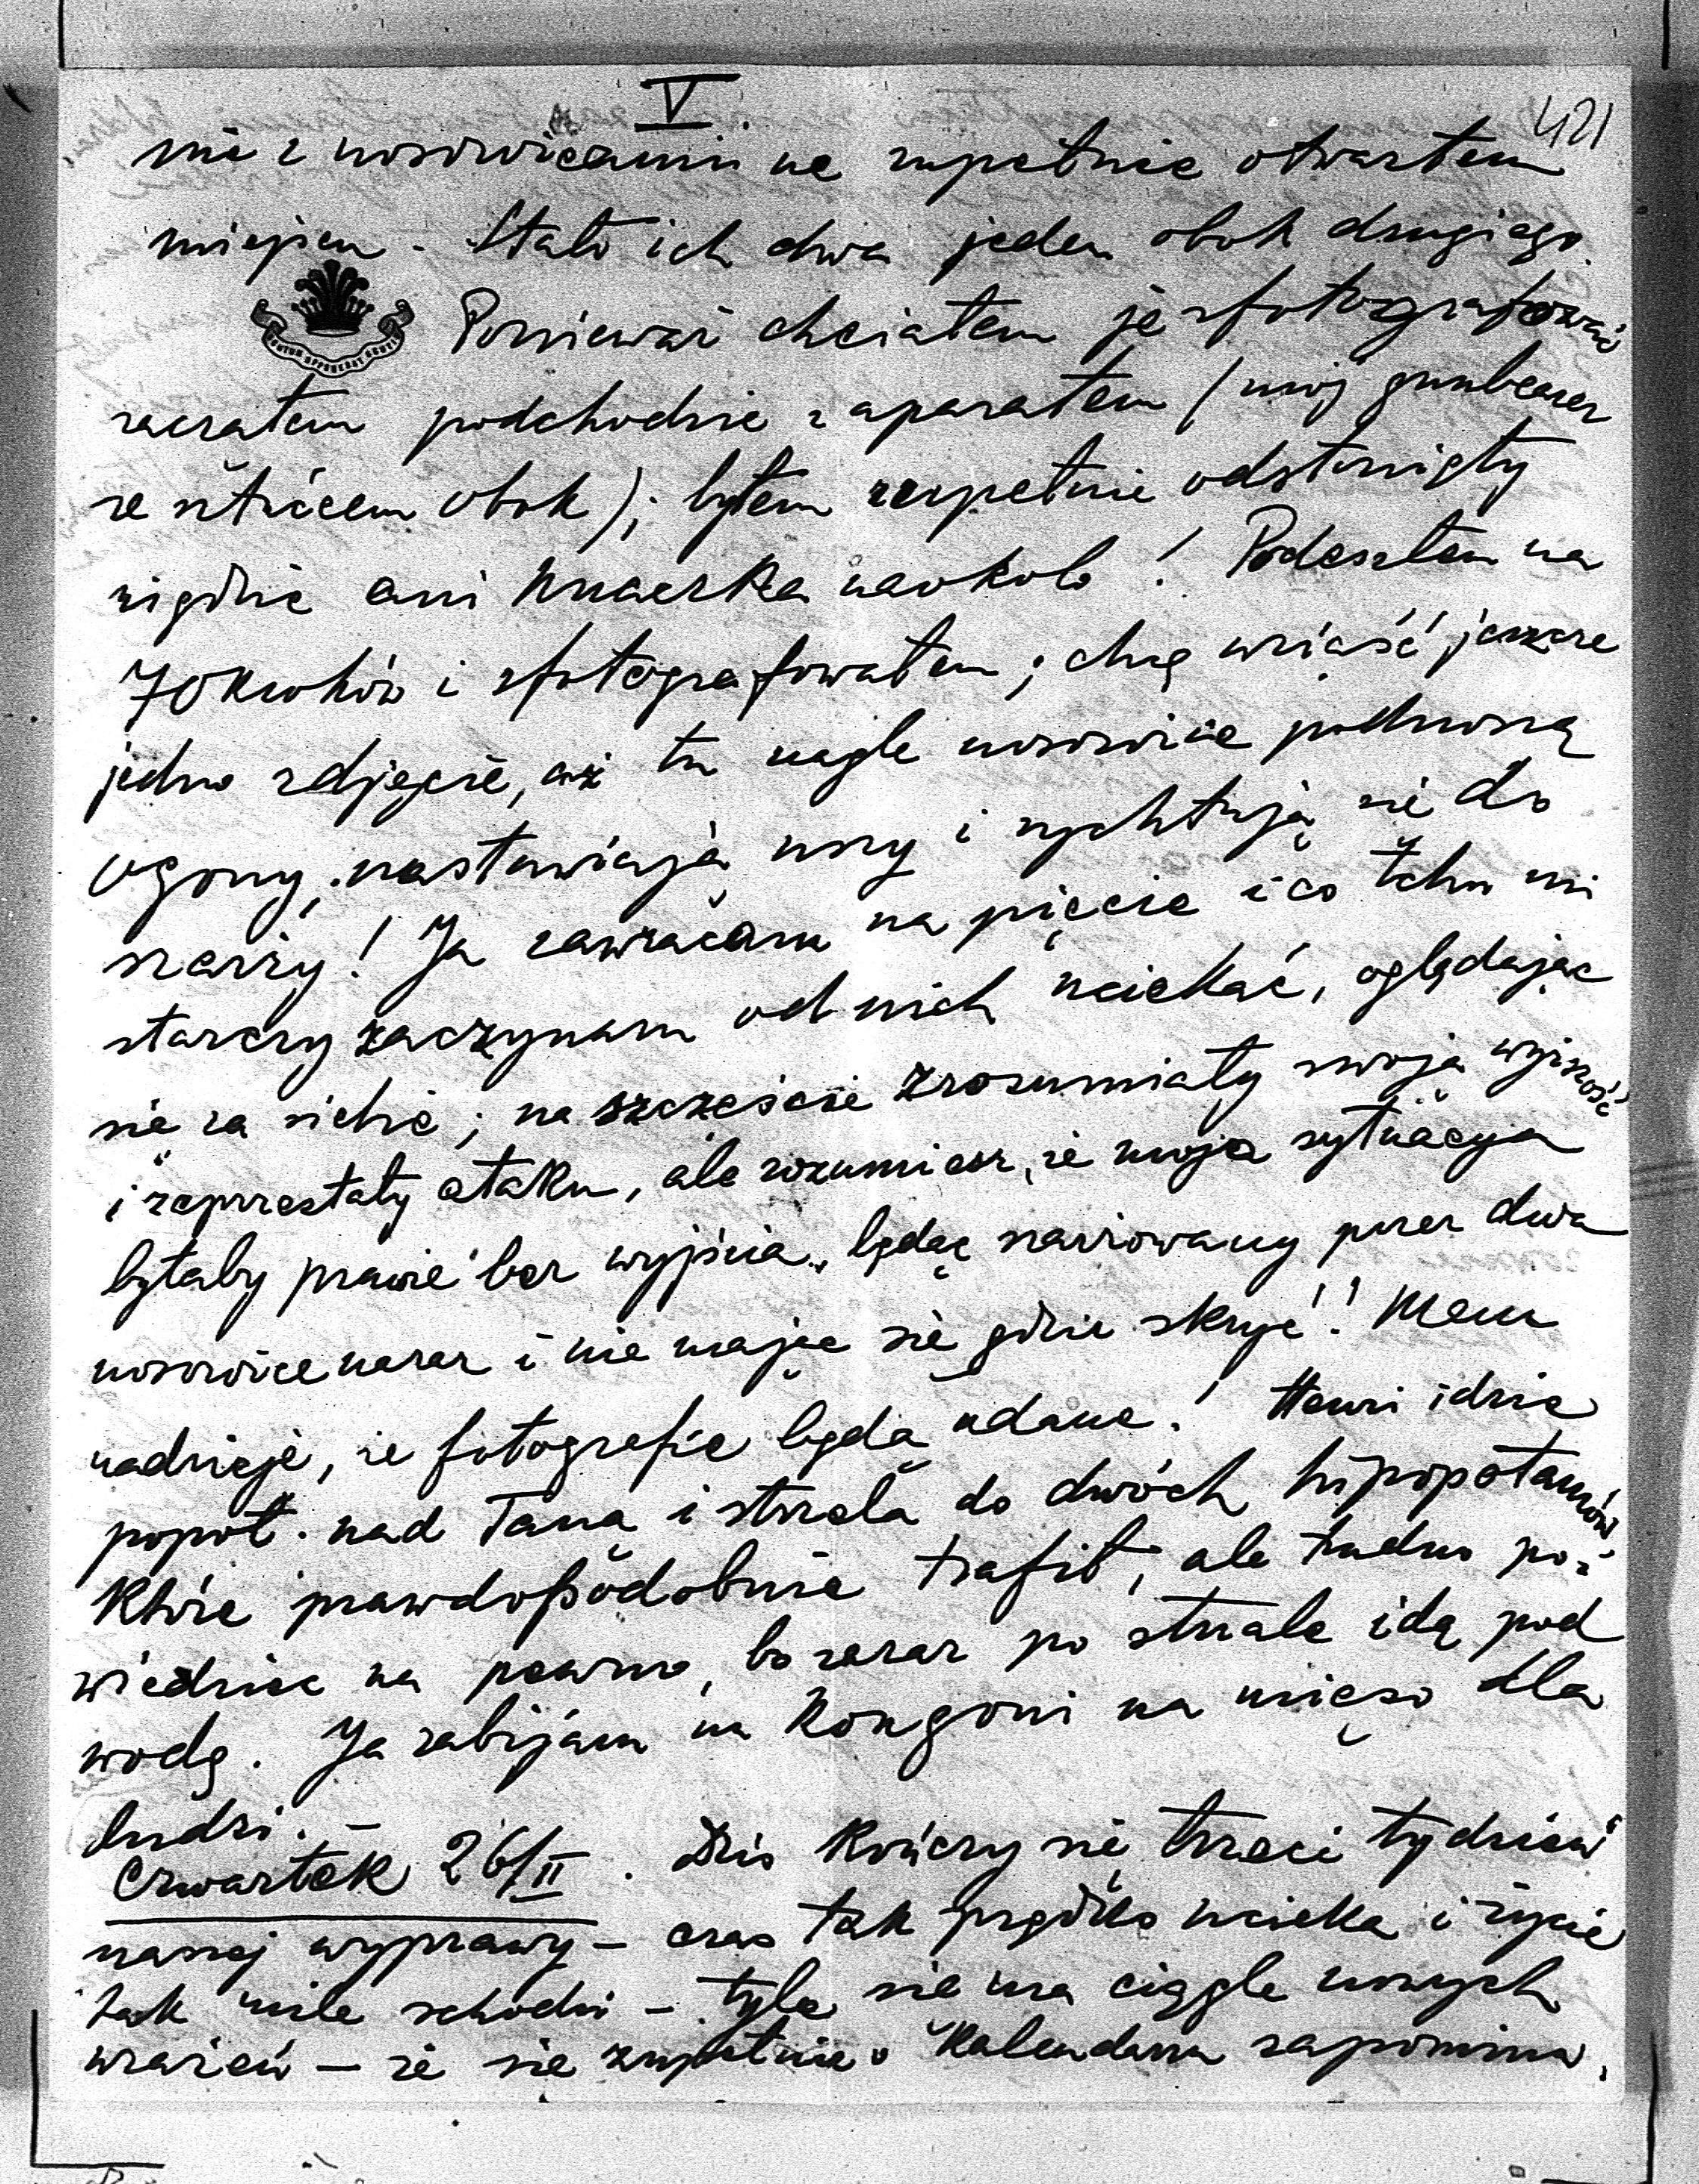 V
421
nie z nosorożcami na zupełnie otwartem
miejscu. Stało ich dwa jeden obok drugiego.
Ponieważ chciałem je sfotografować
zacząłem podchodzić z aparatem (mój gunbearer
ze sztućcem obok); byłem zupełnie odsłonięty
nigdzie ani krzaczka naokoło! Podeszłem na
70 kroków i sfotografowałem; chcę wziąść jeszcze
jedno zdjęcie, aż tu nagle nosorożce podnoszą
ogony, nastawiają uszy i rychtują się do
szarży! Ja zawracam na pięcie i co tchu mi
starczy zaczynam od nich uciekać, oglądając
się za siebie; na szczęście zrozumiały swoją
i zaprzestały ataku, ale rozumiesz, że moja sytuacya
byłaby prawie bez wyjścia, będąc szarżowany przez dwa
nosorożce naraz i nie mając się gdzie skryć!! Mam
nadzieję, że fotografie będą udane! Henri idzie
popoł. nad Taną i strzela do dwóch hipopotamów
które prawdopodobnie trafił, ale trudno po-
wiedzieć na pewno, bo zaraz po strzale idą pod
wodę. Ja zabijam Kongoni na mięso dla
ludzi. –
Czwartek 26/II. Dziś kończy się trzeci tydzień
naszej wyprawy – czas tak prędko ucieka i życie
tak mile schodzi – tyle się ma ciągle nowych
wrażeń – że się zupełnie o kalendarzu zapomina.